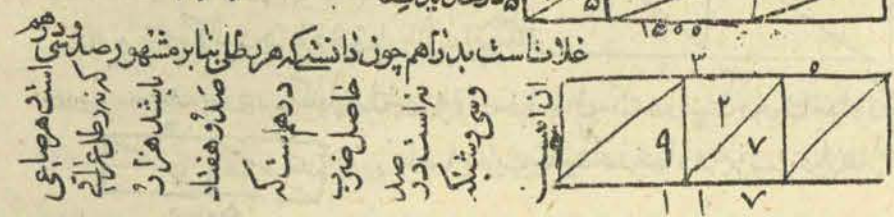 ۵ ۵
۱۵۵۵
غلات است بدراهم چون دانستی که هر رطل بنا بر مشهور صد و سی درهم
است هر صاعی
که نه رطل عراقی
باشد هزار
صد و هفتاد
درهم است که
حاصل ضرب
نه است در
صد
و سی و شبکه
آن اینست
۳ ۵
۹ ۲ ۷
۱ ۱ ۷